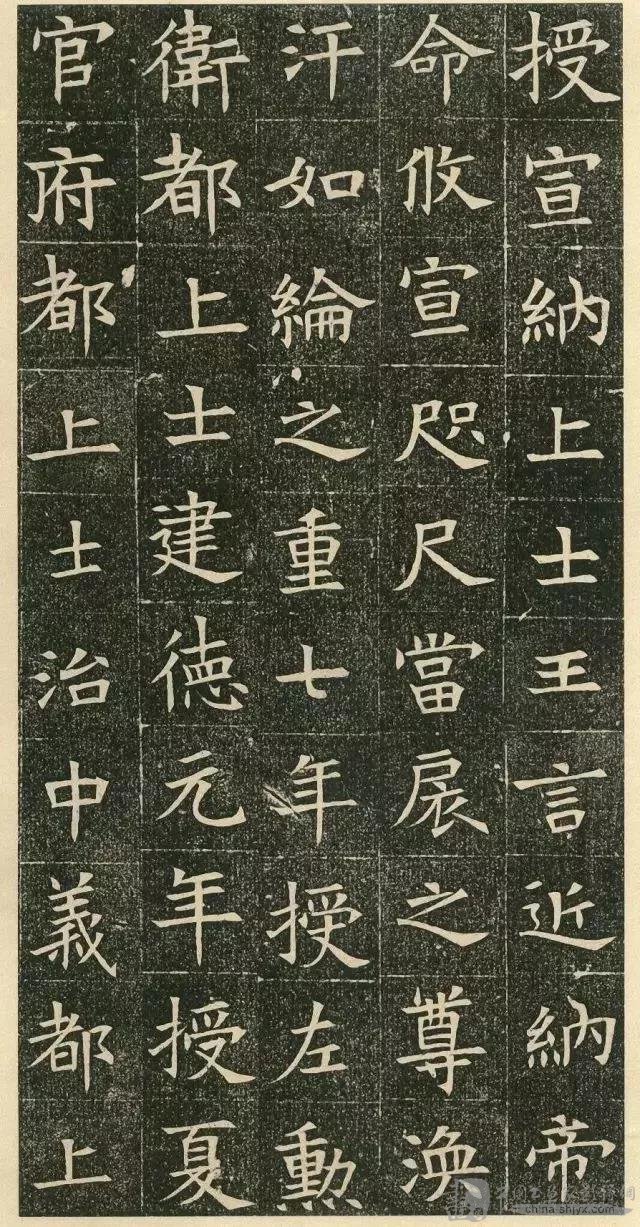 授宣納上士王言近納帝
命攸宣咫尺當扆之尊渙
汗如綸之重七年授左勳
衛都上士建德元年授夏
官府都上士治中義都上
china.shjyx.com